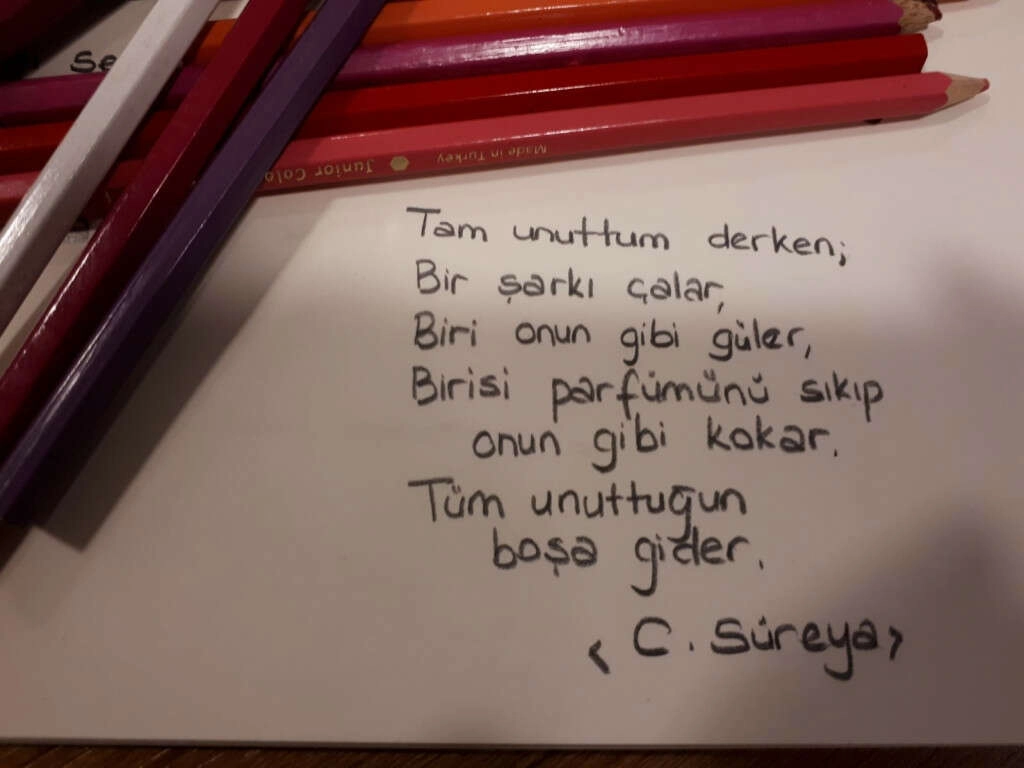 se
Made in Turkey
Junior Colo
Tam unuttum derken;
Bir şarkı çalar,
Biri onun gibi güler,
Birisi parfümünü sıkıp
onun gibi kokar.
Tüm unuttuğun
boşa gider.
< C. Süreya>